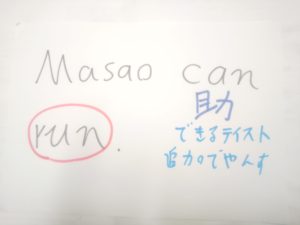 Masao can
run.
助
できるテイスト
追加でやんす